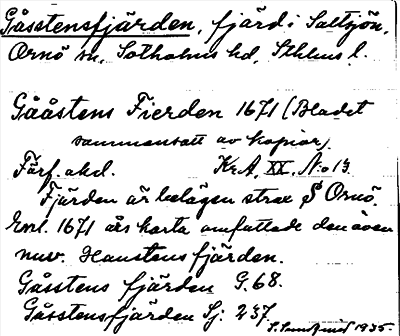 Gåsstensfjärden, fjärd i Saltsjön,
Ornö sn, Sotholms hd, Sthlms l.
Gååstens Fierden 1671 (Bladet
sammansatt av kopior)
Förf. okd. KrA, XX, N:o 13.
Fjärden är belägen strax S Ornö.
Enl. 1671 års karta omfattade den även
nuv. Hanstensfjärden.
Gåsstens fjärden G. 68.
Gåsstensfjärden Sj. 237.
S. Sundqvist 1935.